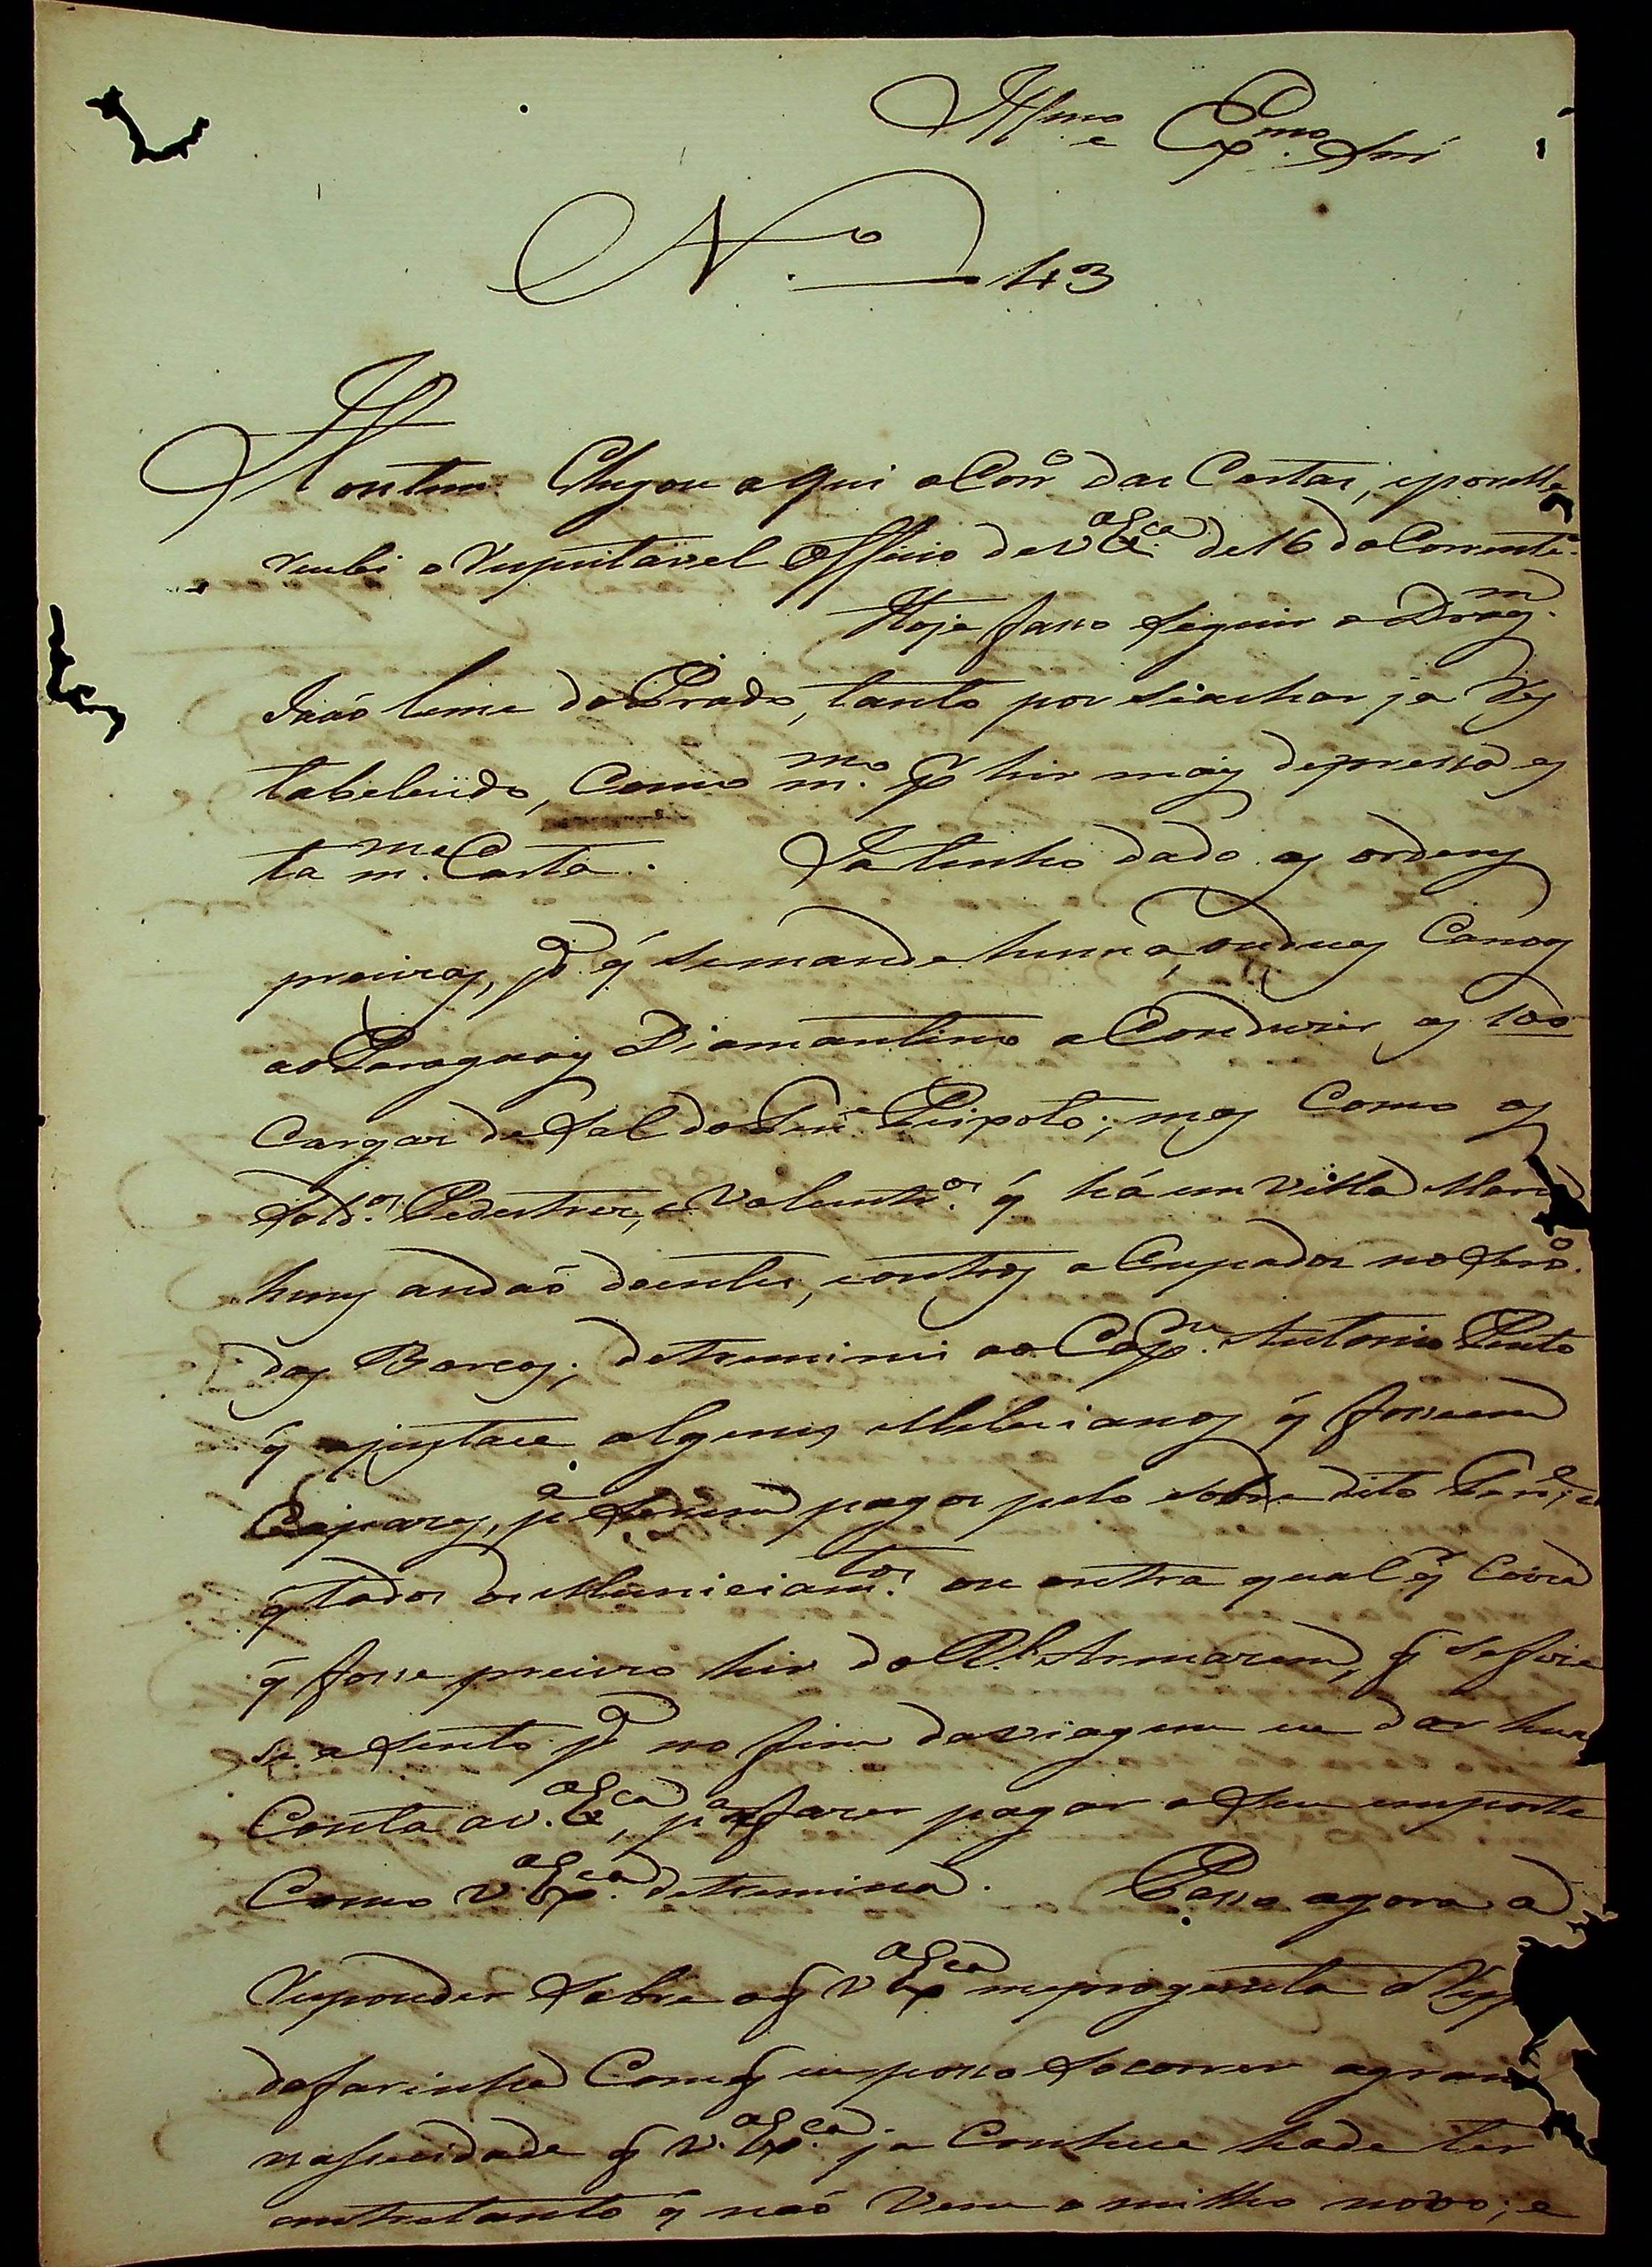 Illmo e Exmo Snr
N.o 43
Hontem Chegou aqui o Corro das Cartas, e por elle
recebi o respeitavel Officio de V Exca de 16 do Corrente.
Hoje faso seguir o Dragm
Joaõ leme do Prado, tanto por se achar ja res
tabelecido, Como mmo pa hir mais depressa es
ta ma Carta. Ja tenho dado as ordens
precizas, pa q se mande huma, ou duas Canoas
ao Paraguay Diamantino a Conduzir as 100
Cargas de Sal do Tene Peixoto; mas Como os
Soldos Pedestres, e Volentros q há em Villa Maria
huns andaõ doentes, e outros a Cupados no Servo
das Barcas; detreminei ao Capm Antonio Pinto
q ajustace alguns Melicianos q fossem
Capazes, pa serem pagos pelo sobredito Tene, e
q todos os Municiamtos ou outra qualqr Coiza
q fosse precizo hir do Rl Armazem, q se fize
se asento pa no fim da viagem eu dar hua
Conta a V. Exca, pa fazer pagar o Seu emporte
Como V. Exca detremina. Passo agora a
responder Sobre o q V Exca me progunta a resp
da farinha Com q eu posso Socorrer a gran
nesecidade q V. Exca ja Conhece hade ter
entretanto q naõ vem o milho novo; e